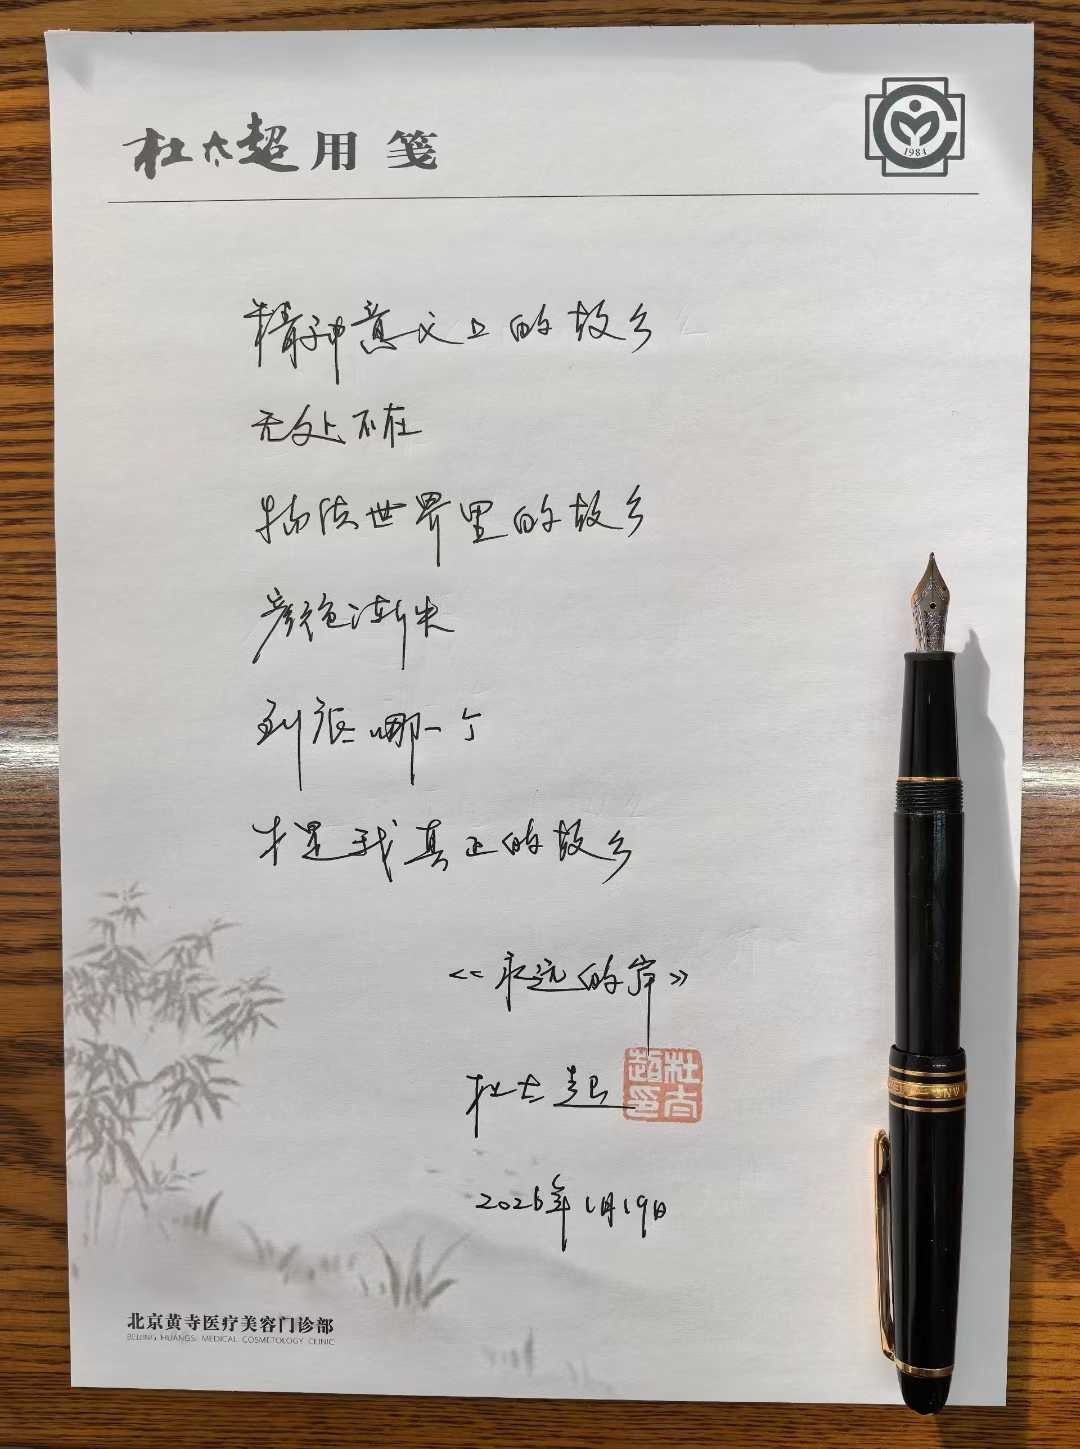 杜太超用笺
1984
精神意义上的故乡
无处不在
物质世界里的故乡
颜色渐失
到底哪一个
才是我真正的故乡
《永远的岸》
杜太超
杜太超印
2026年1月19日
北京黄寺医疗美容门诊部
BEIJING HUANGSI MEDICAL COSMETOLOGY CLINIC